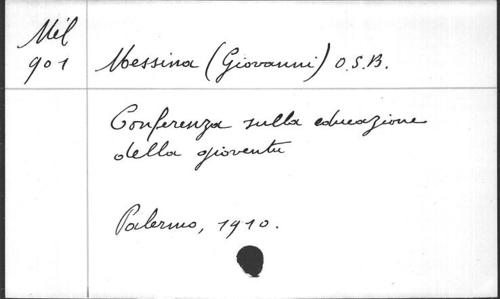 Mil
901
Messina (Giovanni) O.S.B.
Conferenza sulla educazione
della gioventu
Palermo, 1910.